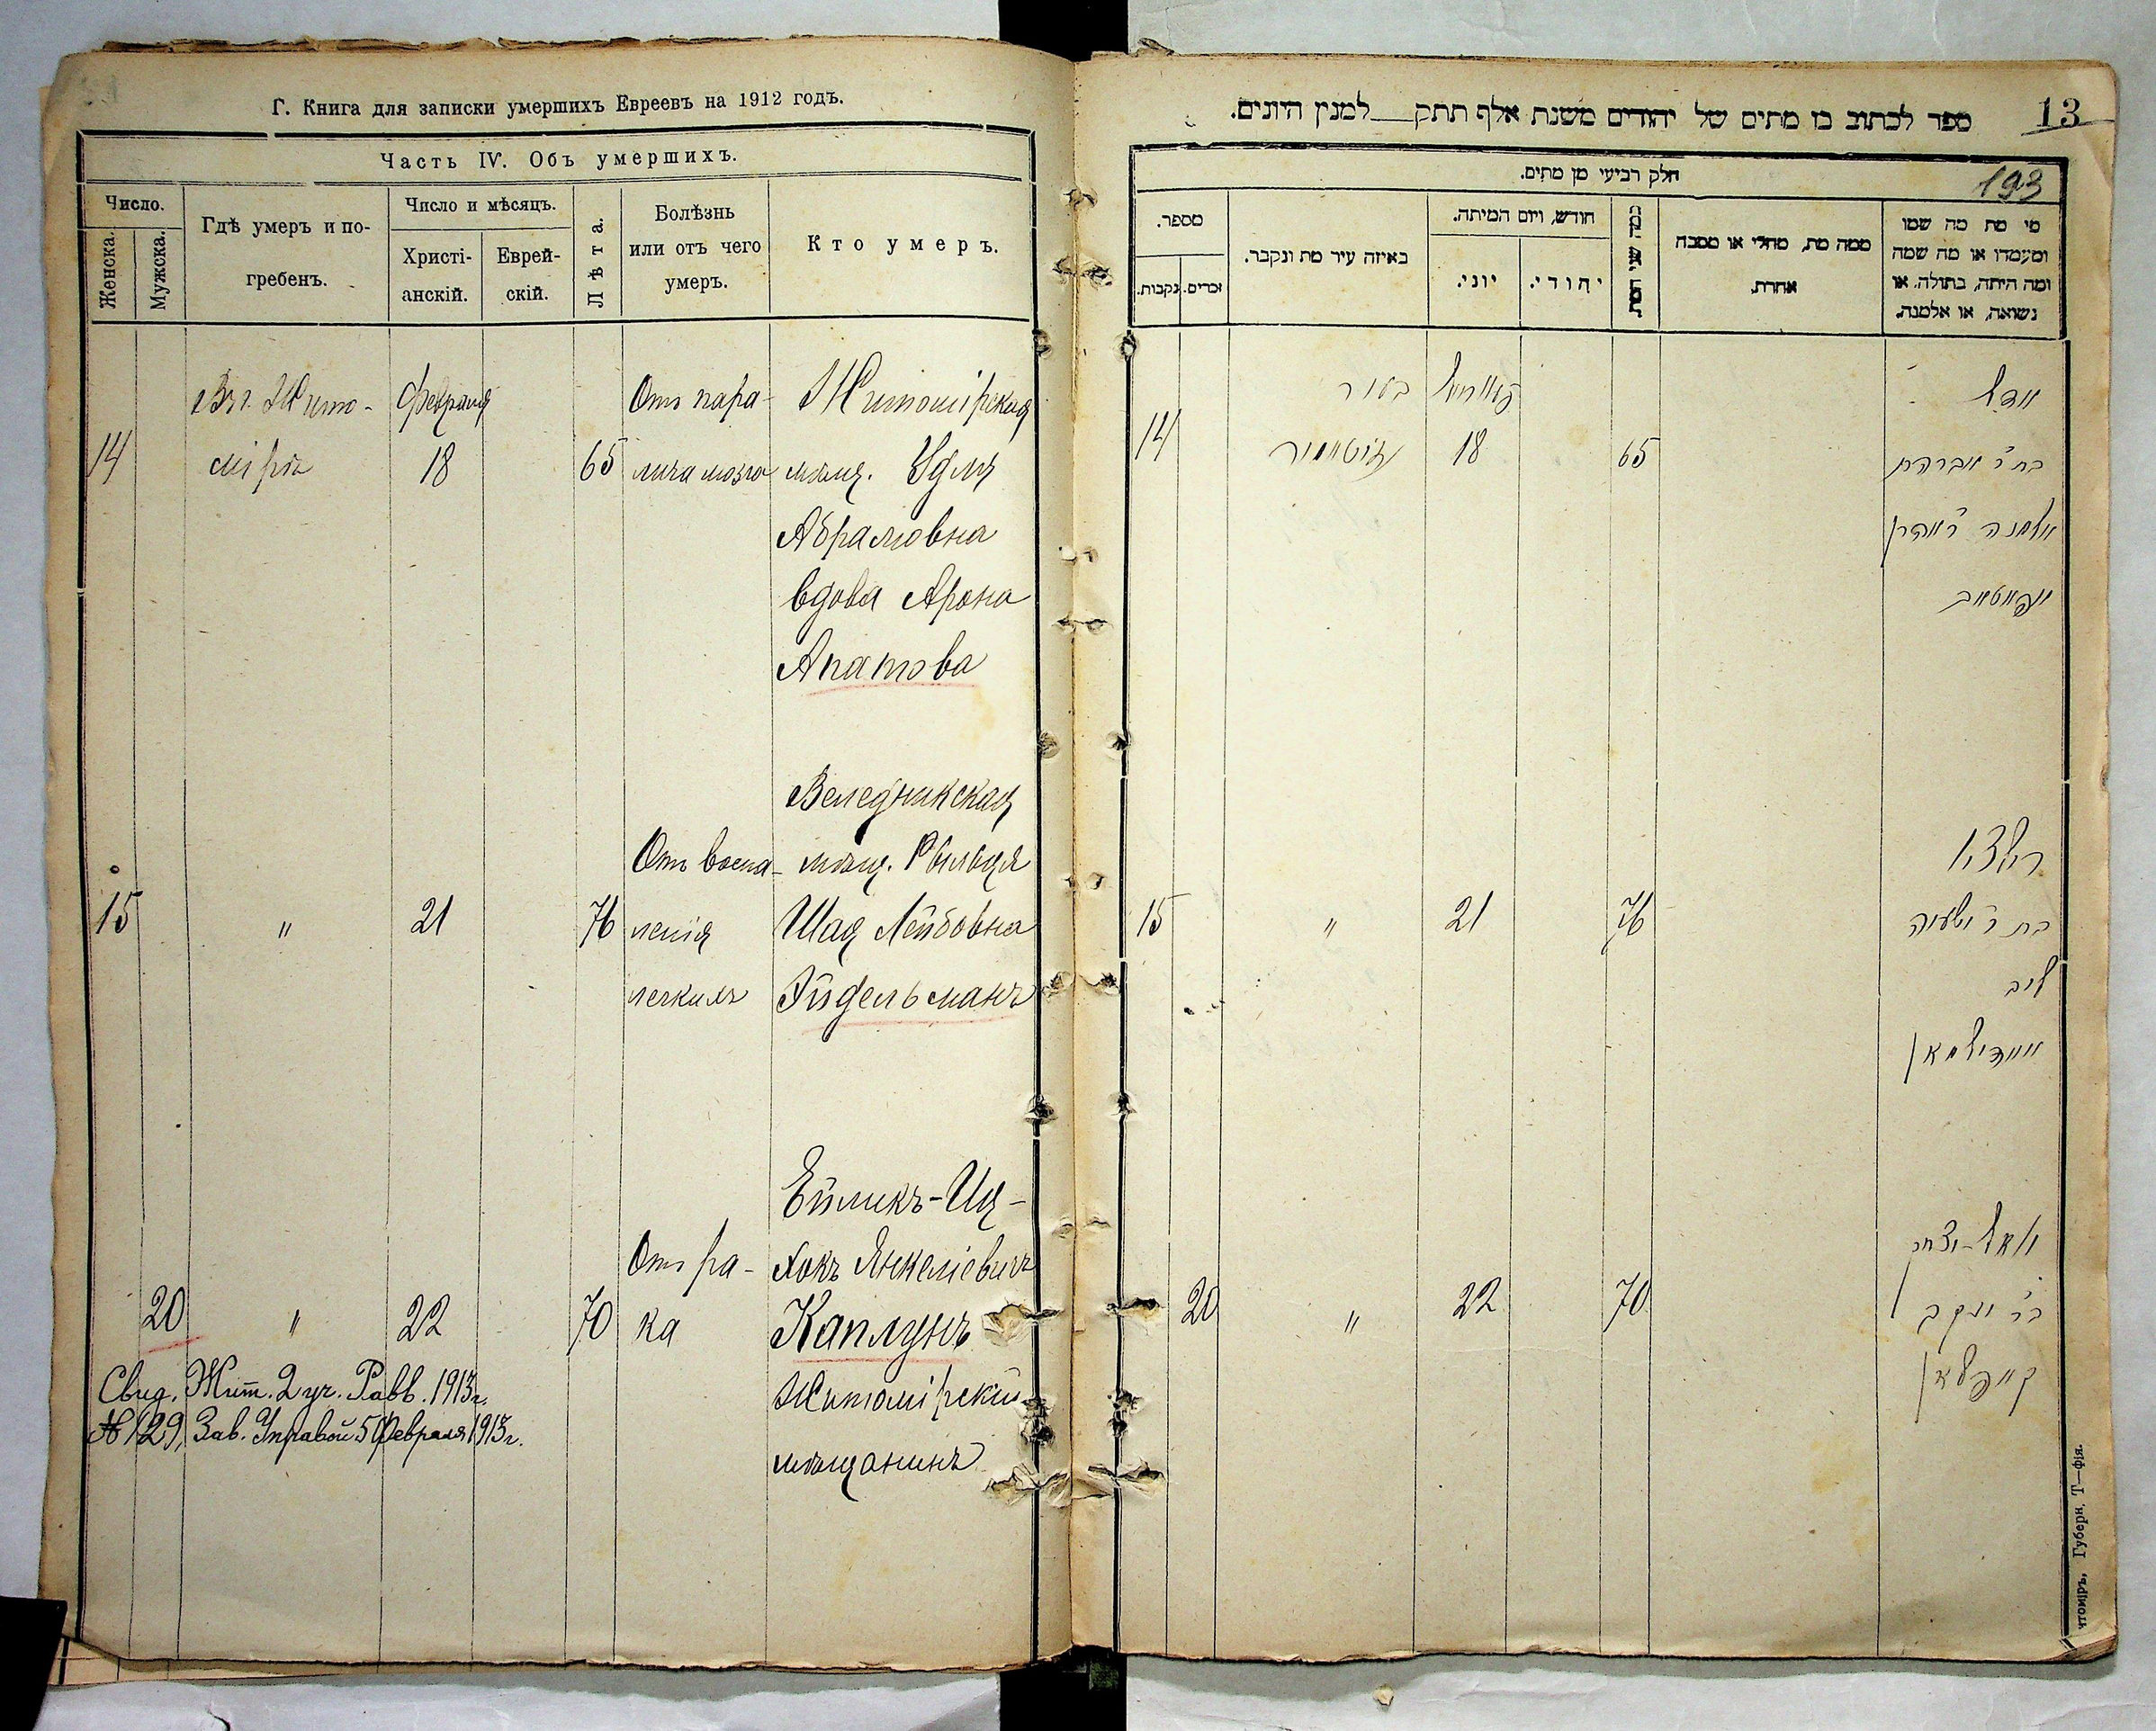 Г. Книга для записки умершихъ Евреевъ на 1912 годъ.
Часть IV. Объ умершихъ.
Число.
Женска.
Мужска.
Гдѣ умеръ и по-
гребенъ.
Число и мѣсяцъ.
Христі-
анскій.
Еврей-
скій.
Лѣта.
Болѣзнь
или отъ чего
умеръ.
Кто умеръ.
14
Въ г. Жито-
мірѣ
Февраля
18
65
Отъ пара-
лича мозга
Житомірская
мѣщ. Удля
Абрамовна
вдова Арона
Апатова
15
"
21
76
Отъ воспа-
ленія
легкихъ
Веледникская
мѣщ. Рыльця
Шая Лейбовна
Эйдельманъ
20
"
22
70
Отъ ра-
ка
Ейликъ-Иц-
хокъ Янкеліевичъ
Каплунъ
Житомірскій
мѣщанинъ
Свид. Жит. 2 уч. Равв. 1913 г.
№ 129, Зав. Управой 5 Февраля 1913 г.
13
ספר לכתוב בו מתים של יהודים משנת אלף תתק למנין היונים.
חלק רביעי מן מתים.
193
מספר.
נקבות.
זכרים.
באיזה עיר מת ונקבר.
חודש, ויום המיתה.
יוני.
יהודי.
כמה שני המת
ממה מת, מחלי או מסבה
אחרת.
מי מת מה שמו
ומעמדו או מה שמה
ומה היתה, בתולה, או
נשואה, או אלמנה.
14
בעיר
זיטאמיר
18
65
אודל
בת ר' אברהם
אלמנה ר' אהרן
אפאטאוו
15
"
21
76
רילציא
בת ר' ישעיה
ליב
איידילמאן
20
"
22
70
יצחק
בר' יעקב
קאפלאן
Губерн. Т—фія.